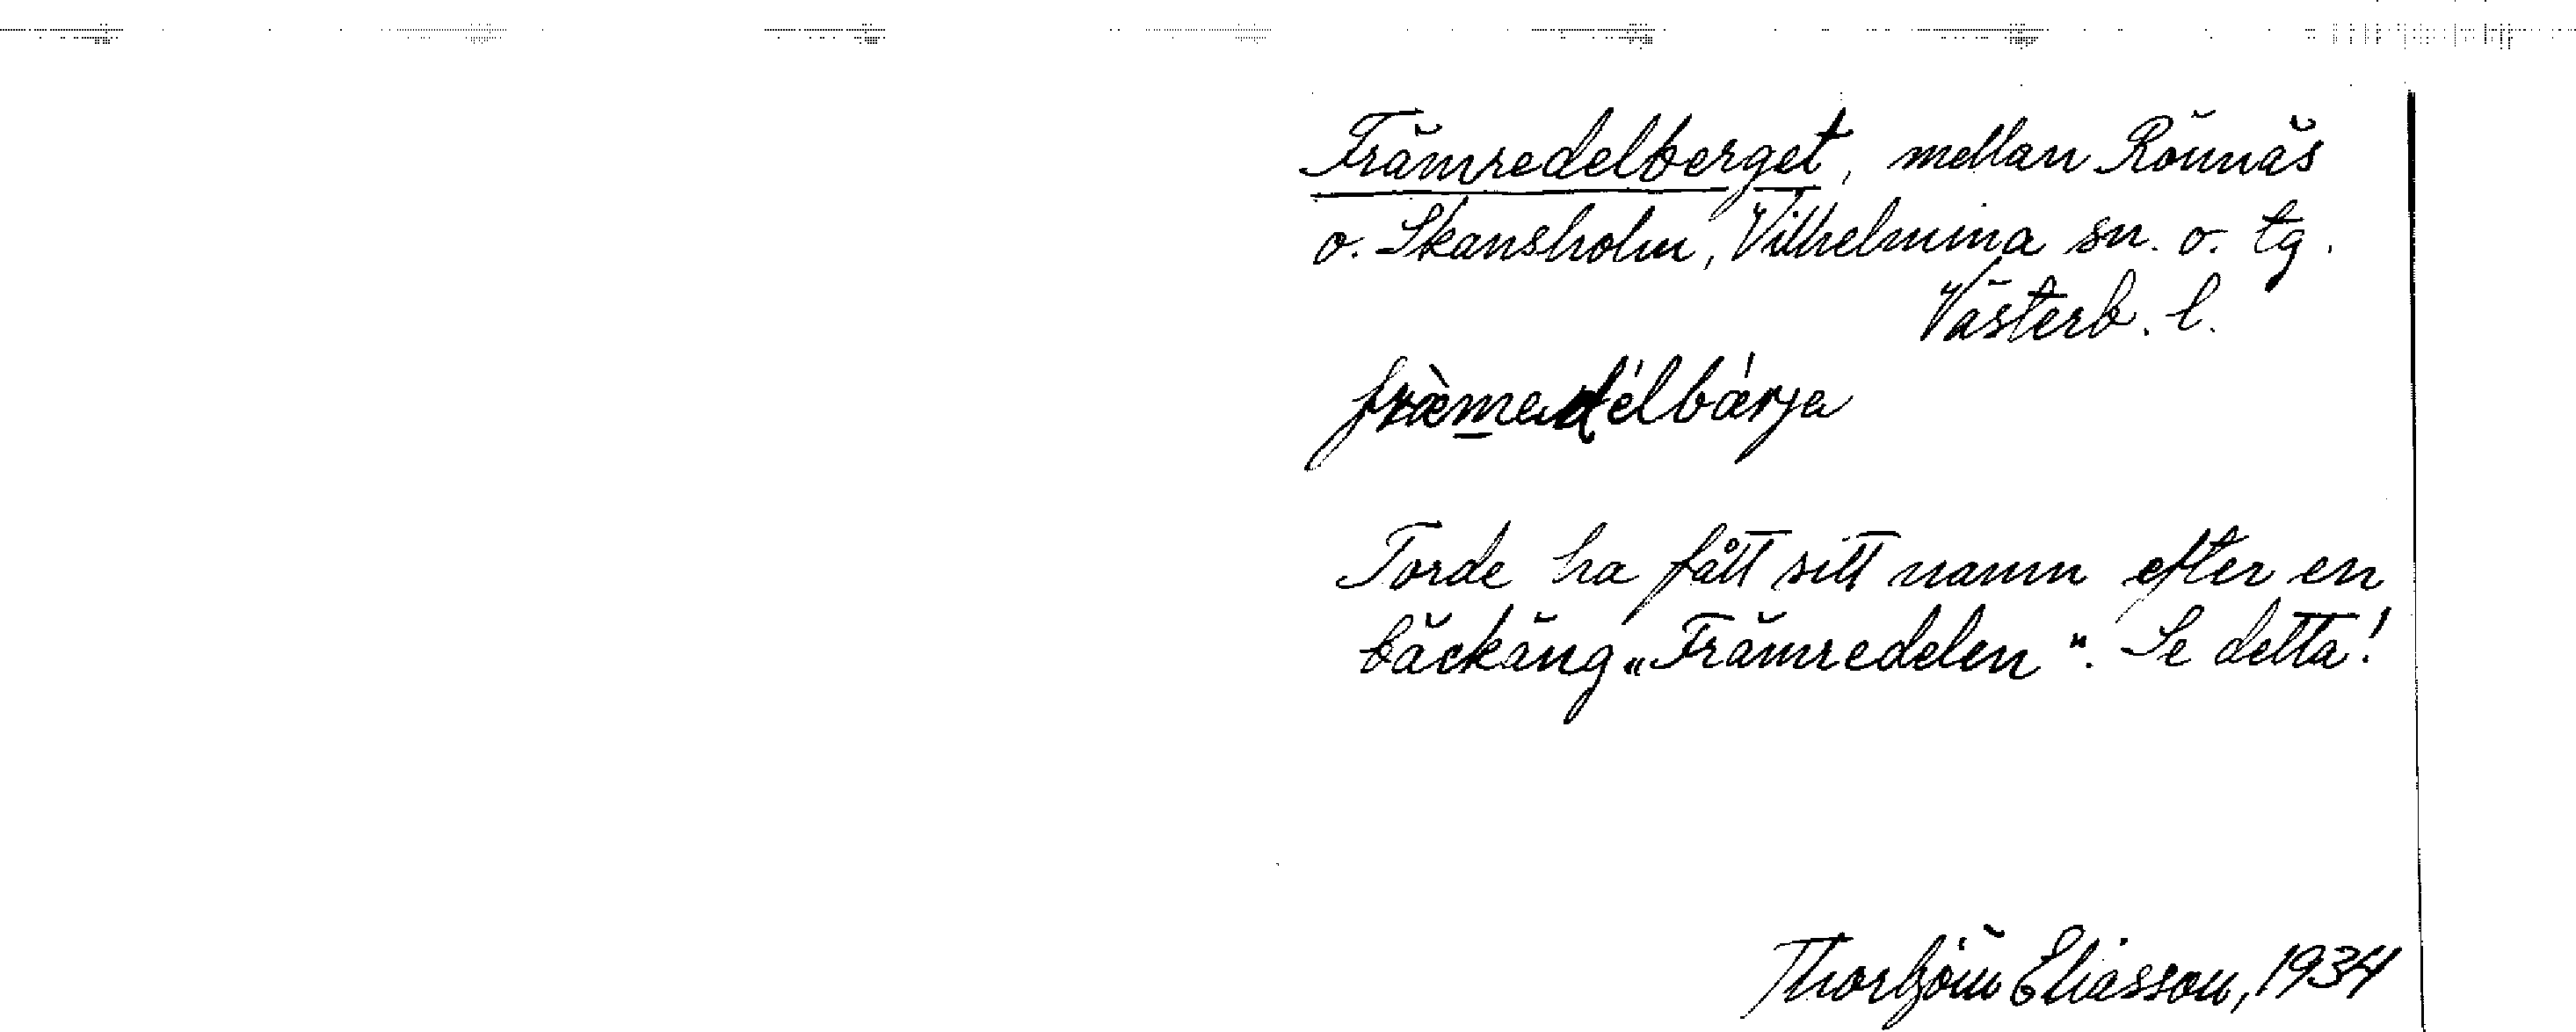 Främredelberget, mellan Rönnäs
o. Skansholm, Vilhelmina sn. o. tg.
Västerb. l.
Torde ha fått sitt namn efter en
bäckäng „Främredelen”. Se detta!
Thorbjörn Eliasson, 1934